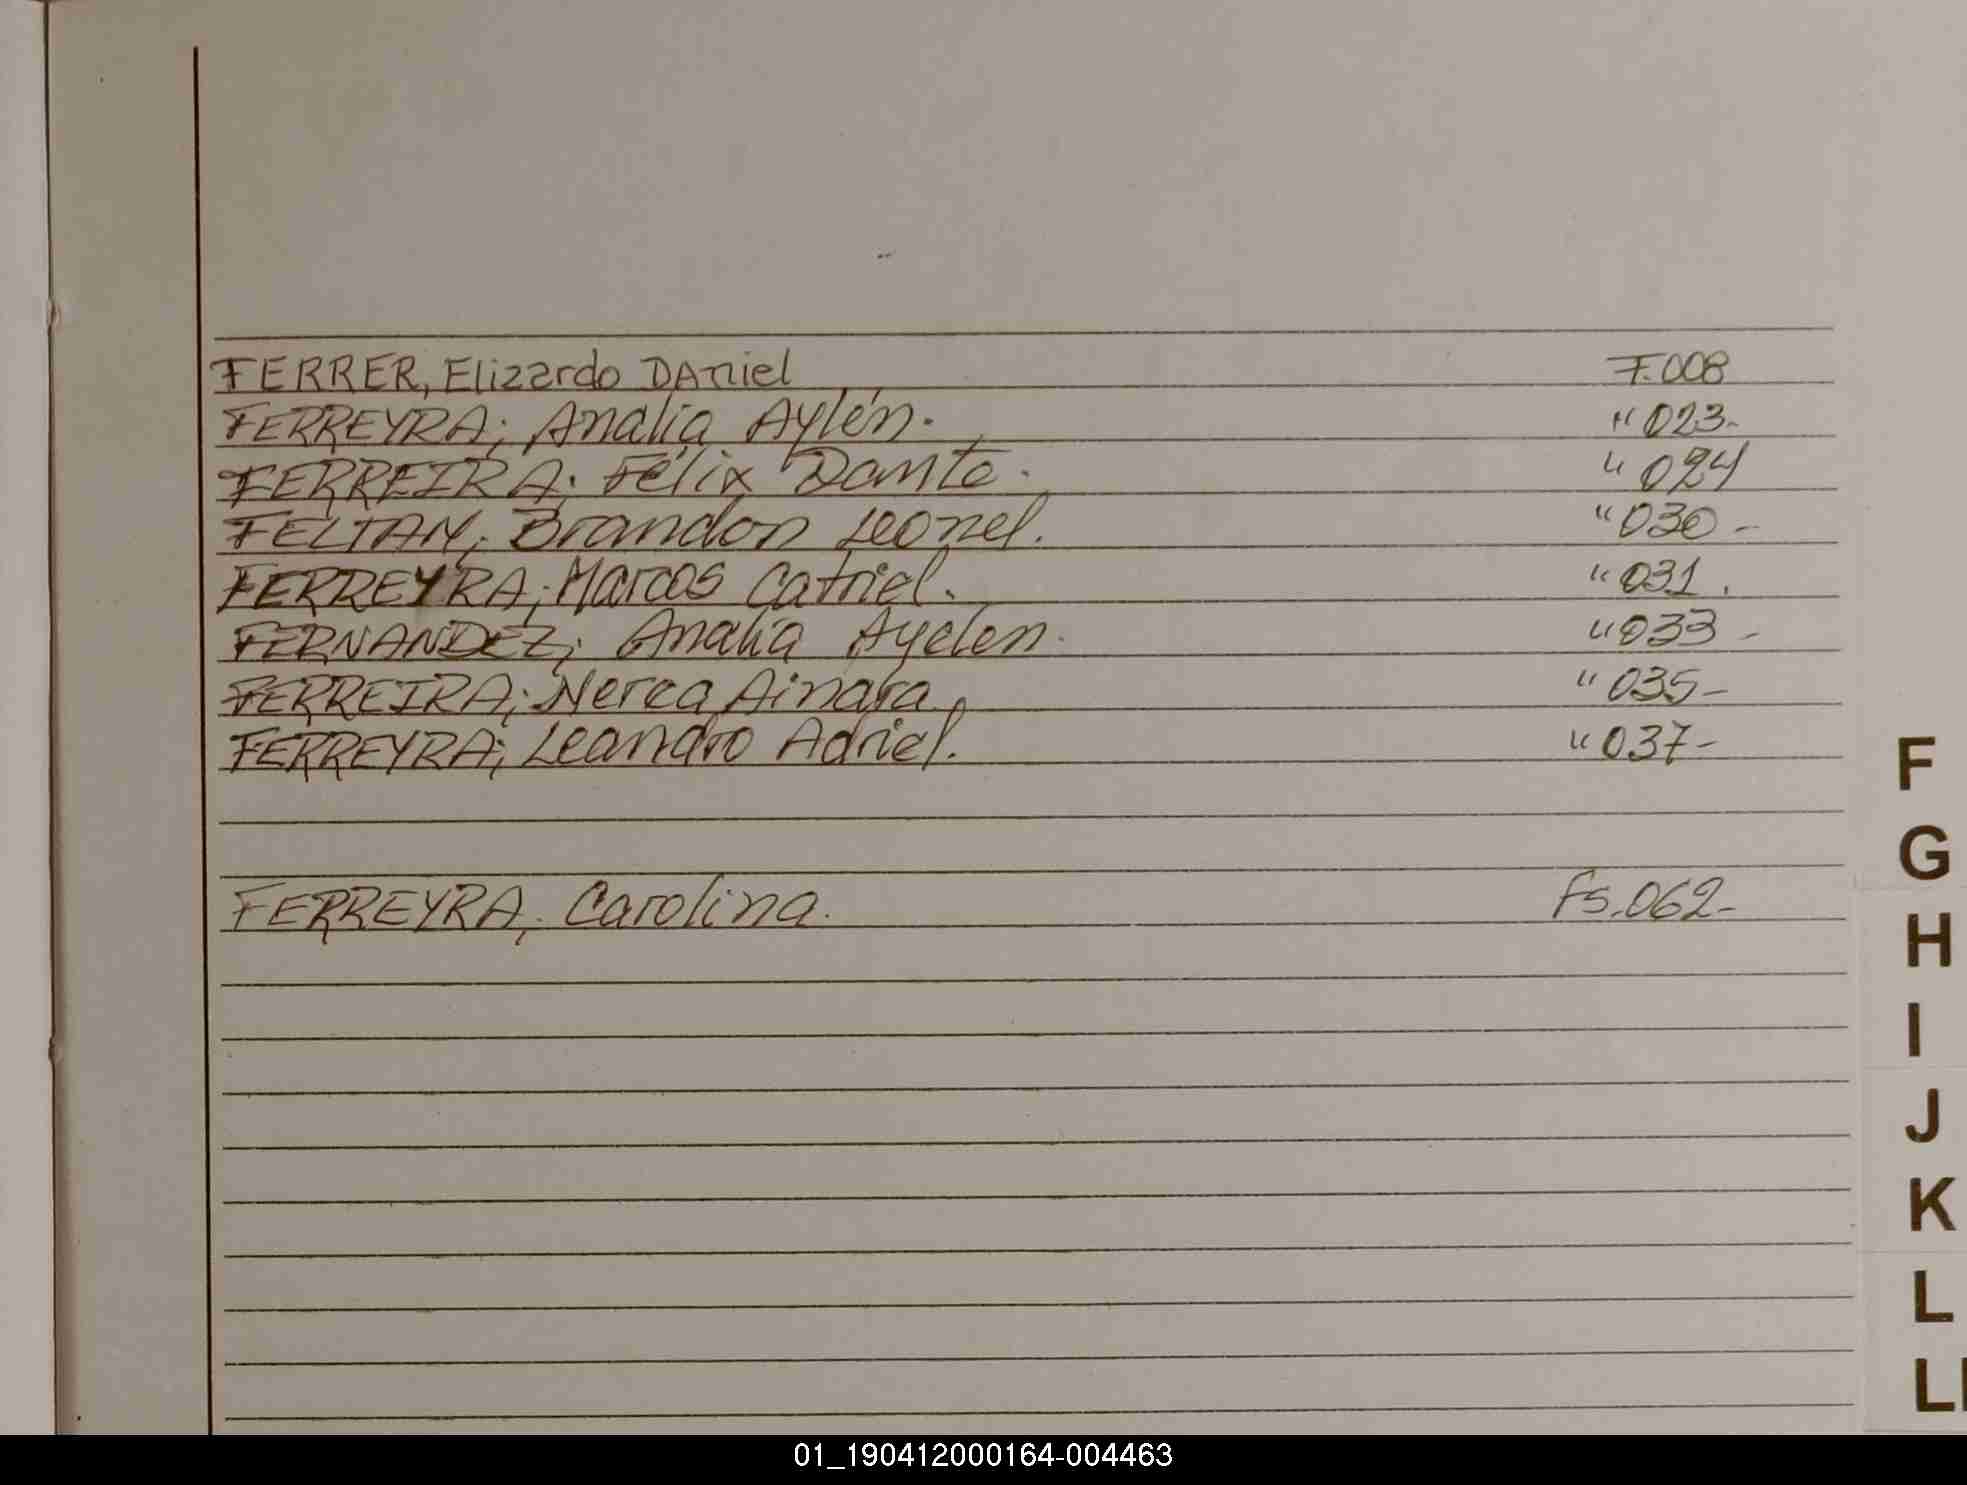 FERRER, Elizardo DAniel F.008
FERREYRA; Analía Aylén. " 023-
FERREIRA; Félix Dante. " 024
FELTAN; Brandon Leonel. " 030-
FERREYRA; Marcos Catriel. " 031.
FERNANDEZ; Analia Ayelen. " 033-
FERREIRA; Nerea Ainara. " 035-
FERREYRA; Leandro Adriel. " 037-
FERREYRA; Carolina. Fs.062-
F
G
H
I
J
K
L
Ll
01_190412000164-004463